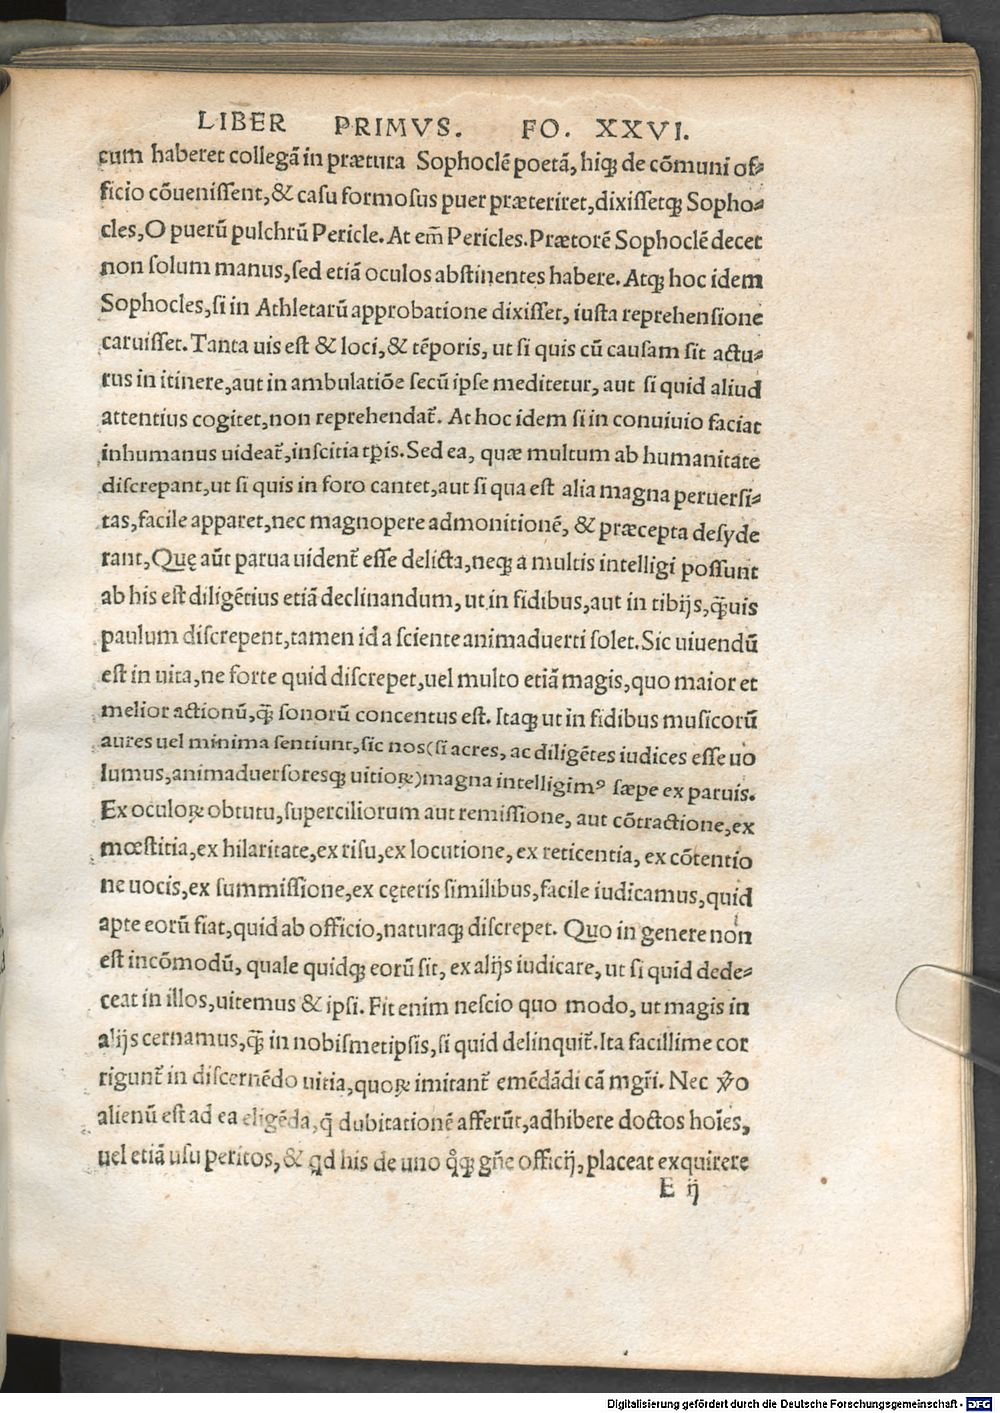 LIBER PRIMVS. FO. XXVI.
cum haberet collegā in prætura Sophoclē poetā, hiq̃ de cōmuni of⸗
ficio cōuenissent, & casu formosus puer præteriret, dixissetq̃ Sopho⸗
cles, O puerū pulchrū Pericle. At em̄ Pericles. Prætorē Sophoclē decet
non solum manus, sed etiā oculos abstinentes habere. Atq̃ hoc idem
Sophocles, si in Athletarū approbatione dixisset, iusta reprehensione
caruisset. Tanta uis est & loci, & tēporis, ut si quis cū causam sit actu⸗
rus in itinere, aut in ambulatiōe secū ipse meditetur, aut si quid aliud
attentius cogitet, non reprehendat̃. At hoc idem si in conuiuio faciat
inhumanus uideat̃, inscitia tp̄is. Sed ea, quæ multum ab humanitate
discrepant, ut si quis in foro cantet, aut si qua est alia magna peruersi⸗
tas, facile apparet, nec magnopere admonitionē, & præcepta desyde
rant, Quę aūt parua uident̃ esse delicta, neq̃ a multis intelligi possunt
ab his est diligētius etiā declinandum, ut in fidibus, aut in tibijs, q̄uis
paulum discrepent, tamen id a sciente animaduerti solet. Sic uiuendū
est in uita, ne forte quid discrepet, uel multo etiā magis, quo maior et
melior actionū, q̄ sonorū concentus est. Itaq̃ ut in fidibus musicorū
aures uel minima sentiunt, sic nos (si acres, ac diligētes iudices esse uo
lumus, animaduersoresq̃ uitioꝝ) magna intelligimꝰ sæpe ex paruis.
Ex oculoꝝ obtutu, superciliorum aut remissione, aut cōtractione, ex
mœstitia, ex hilaritate, ex risu, ex locutione, ex reticentia, ex cōtentio
ne uocis, ex summissione, ex cęteris similibus, facile iudicamus, quid
apte eorū fiat, quid ab officio, naturaq̃ discrepet. Quo in genere non
est incōmodū, quale quidq̃ eorū sit, ex alijs iudicare, ut si quid dede⸗
ceat in illos, uitemus & ipsi. Fit enim nescio quo modo, ut magis in
alijs cernamus, q̄ in nobismetipsis, si quid delinquit̃. Ita facillime cor
rigunt̃ in discernēdo uitia, quoꝝ imitant̃ emēdādi cā mgr̄i. Nec ꝟo
alienū est ad ea eligēda, q̄ dubitationē afferūt, adhibere doctos hoīes,
uel etiā usu peritos, & qd his de uno q̊q̃ gn̄e officij, placeat exquirere
E ij
Digitalisierung gefördert durch die Deutsche Forschungsgemeinschaft - DFG